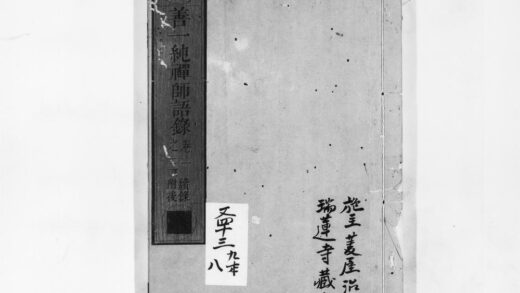 施主菱屋治
瑞蓮寺藏
善一純禪師語錄 卷之一 續錄附後
又四十三 九本
八